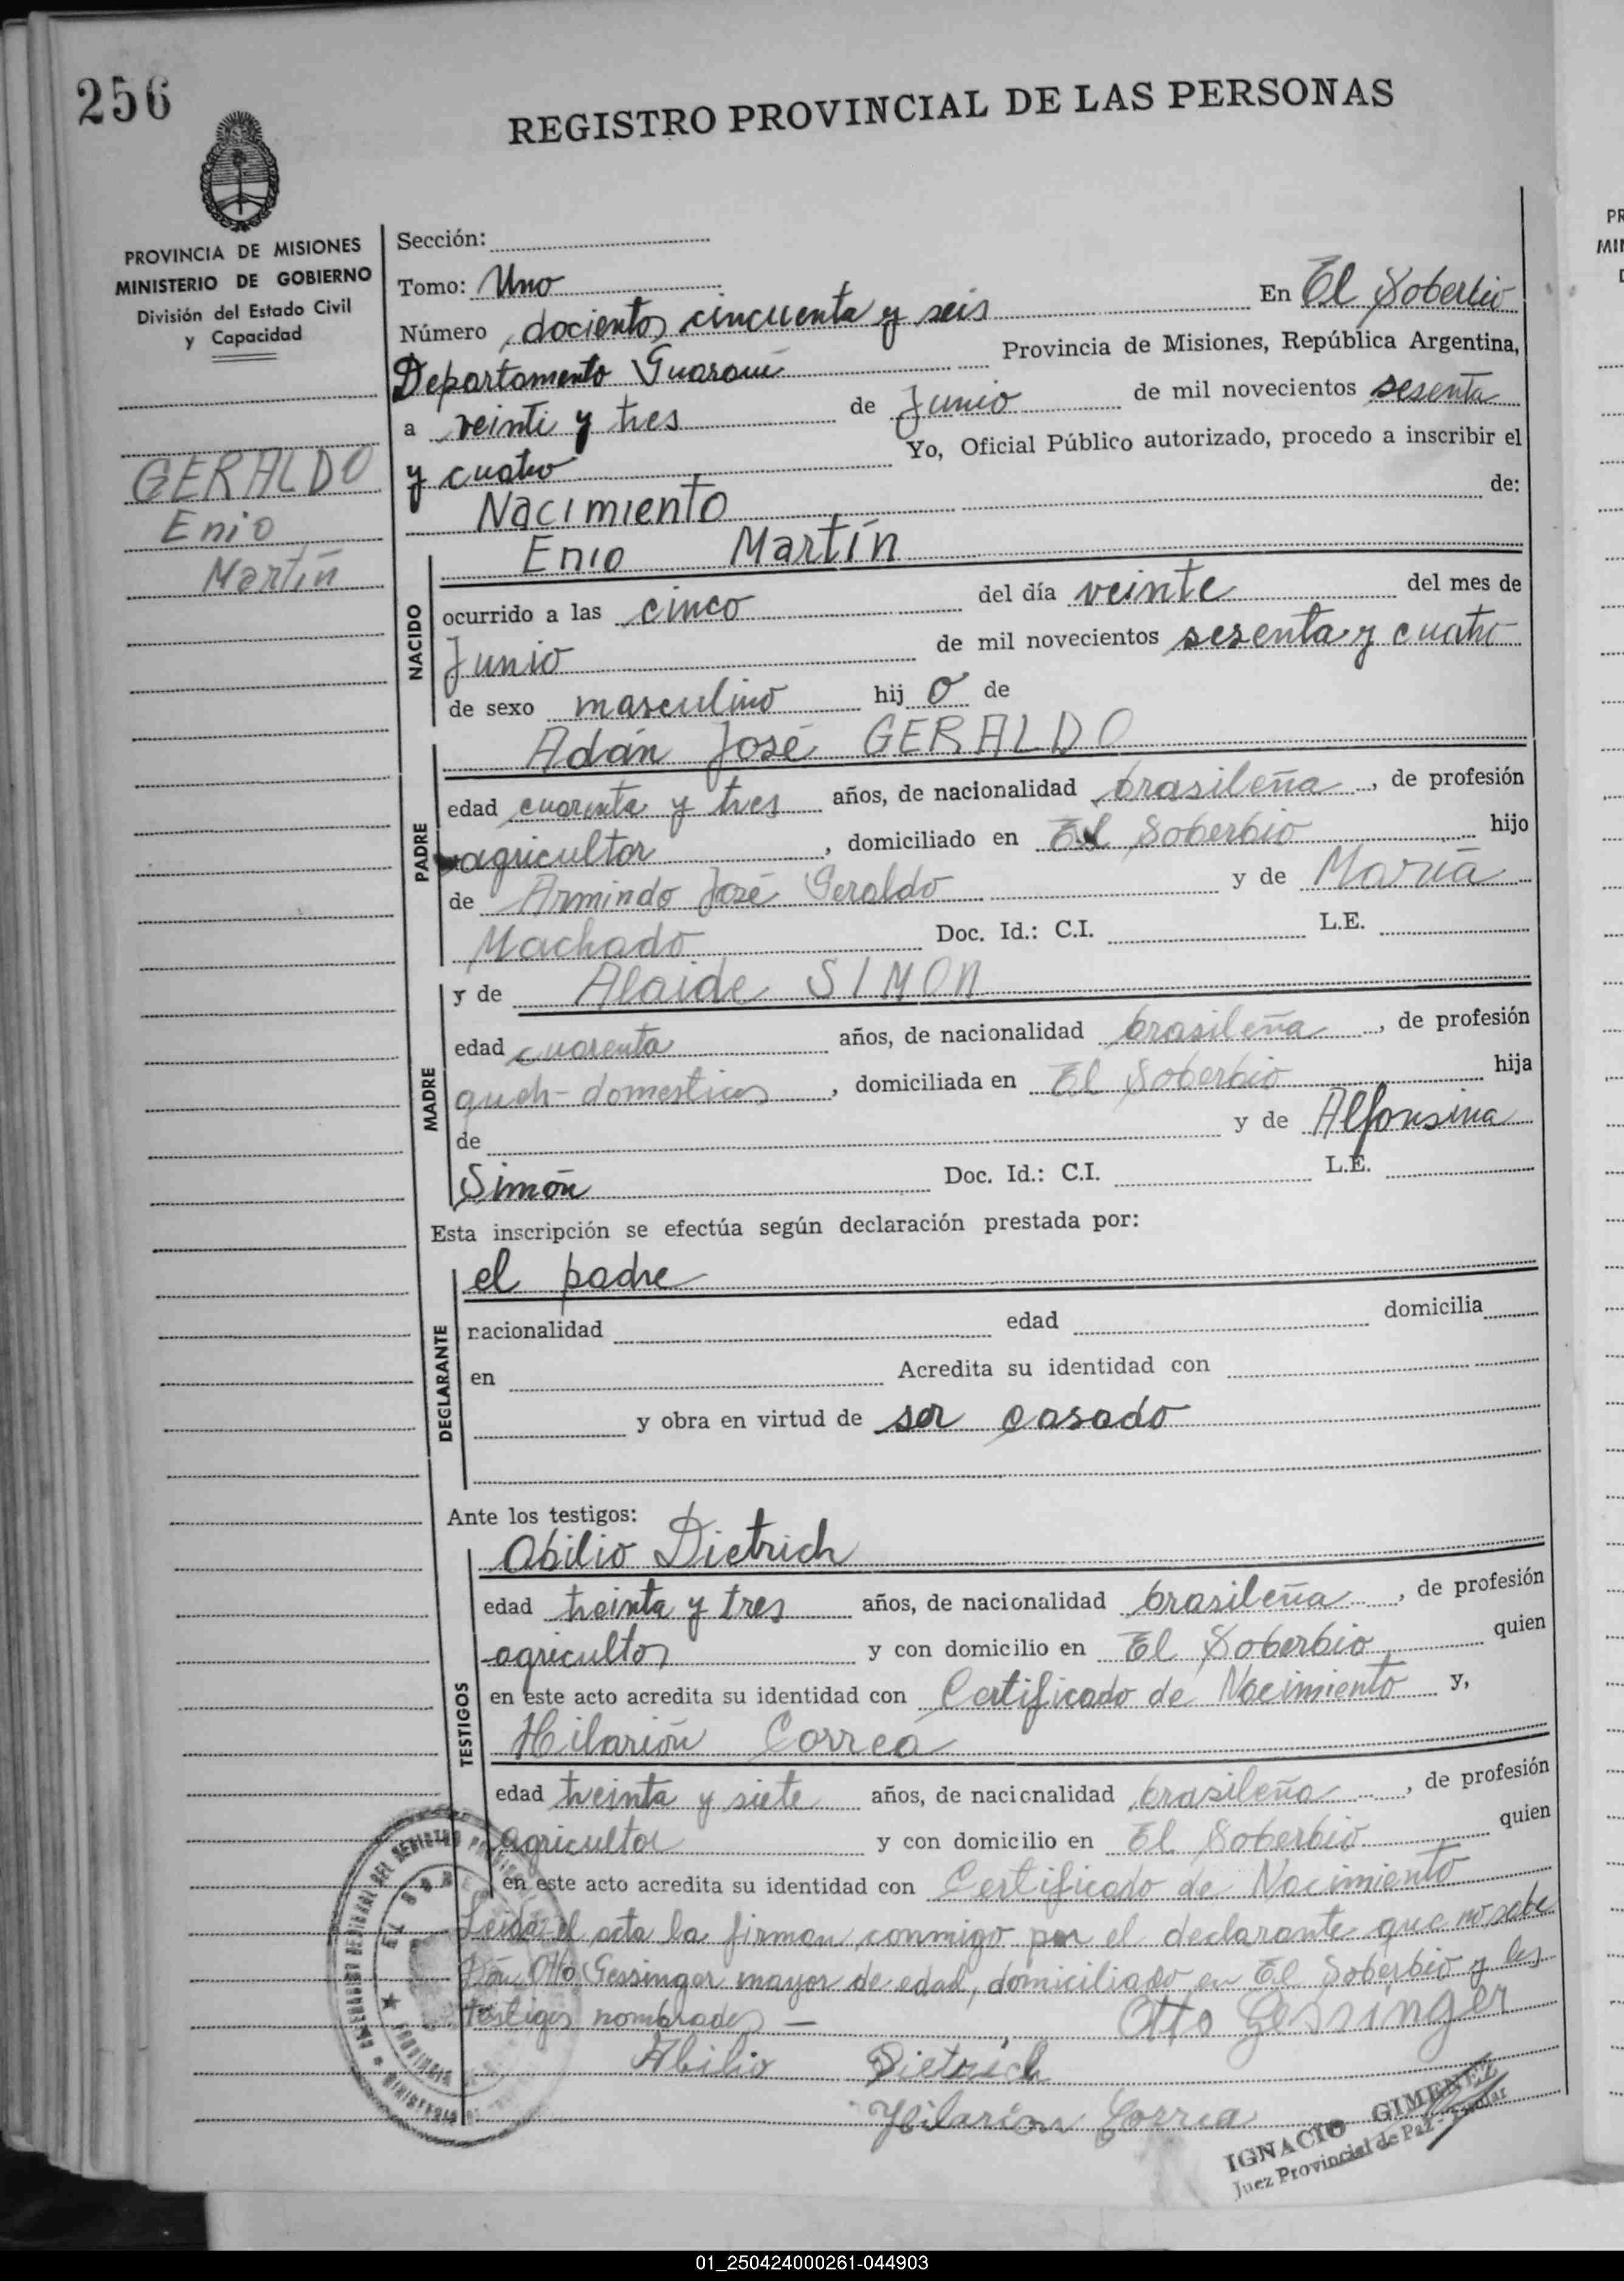 256
REGISTRO PROVINCIAL DE LAS PERSONAS
PROVINCIA DE MISIONES
MINISTERIO DE GOBIERNO
División del Estado Civil
y Capacidad
GERALDO
Enio
Martín
Sección:
Tomo: Uno
Número docientos cincuenta y seis En El Soberbio
Departamento Guaraní Provincia de Misiones, República Argentina,
a veinti y tres de Junio de mil novecientos sesenta
y cuatro Yo, Oficial Público autorizado, procedo a inscribir el
Nacimiento de:
NACIDO
Enio Martín
ocurrido a las cinco del día veinte del mes de
Junio de mil novecientos sesenta y cuatro
de sexo masculino hij o de
PADRE
Adán José GERALDO
edad cuarenta y tres años, de nacionalidad brasileña, de profesión
agricultor, domiciliado en El Soberbio hijo
de Armindo José Geraldo y de María
Machado Doc. Id.: C.I. L.E.
MADRE
y de Alaide SIMON
edad cuarenta años, de nacionalidad brasileña, de profesión
queh-domesticos, domiciliada en El Soberbio hija
de y de Alfonsina
Simón Doc. Id.: C.I. L.E.
Esta inscripción se efectúa según declaración prestada por:
DECLARANTE
el padre
nacionalidad edad domicilia
en Acredita su identidad con
y obra en virtud de ser casado
Ante los testigos:
TESTIGOS
Abilio Dietrich
edad treinta y tres años, de nacionalidad brasileña, de profesión
agricultor y con domicilio en El Soberbio quien
en este acto acredita su identidad con Certificado de Nacimiento y,
Hilarión Correa
edad treinta y siete años, de nacionalidad brasileña, de profesión
agricultor y con domicilio en El Soberbio quien
en este acto acredita su identidad con Certificado de Nacimiento
Leída el acta la firman conmigo por el declarante que no sabe
Don Otto Gessinger mayor de edad, domiciliado en El Soberbio y los
testigos nombrados —
Otto Gessinger
Abilio Dietrich
Hilarión Correa
IGNACIO GIMENEZ
Juez Provincial de Paz - Titular
PR
MIN
01_250424000261-044903